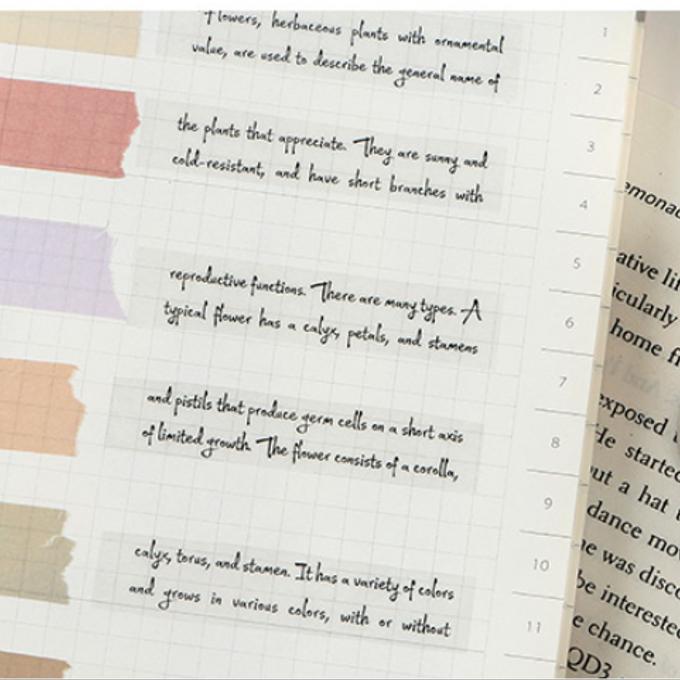 Flowers, herbaceous plants with ornamental
value, are used to describe the general name of
the plants that appreciate. They are sunny and
cold-resistant, and have short branches with
reproductive functions. There are many types. A
typical flower has a calyx, petals, and stamens
and pistils that produce germ cells on a short axis
of limited growth. The flower consists of a corolla,
calyx, torus, and stamen. It has a variety of colors
and grows in various colors, with or without
1
2
3
4
5
6
7
8
9
10
11
ative
icularly
home
exposed
He started
out a hat
dance
he was
be interested
e chance.
QD3